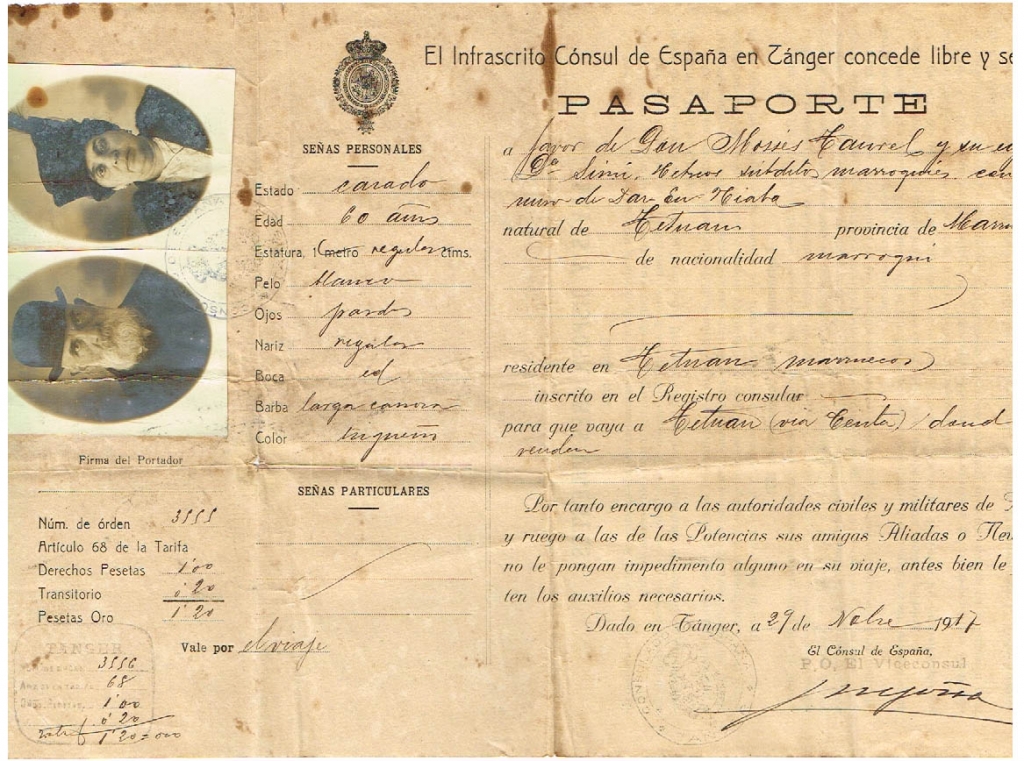 El Infrascrito Cónsul de España en Tánger concede libre y se
PASAPORTE
a favor de Don Mosés Taurel y su
Dª Simi. Hebreos subditos marroquies con
natural de Tetuan provincia de Marru
de nacionalidad marroqui
residente en Tetuan marruecos
inscrito en el Registro consular
para que vaya a Tetuan (via Ceuta) dond
residen
Por tanto encargo a las autoridades civiles y militares de
y ruego a las de las Potencias sus amigas Aliadas o Neu
no le pongan impedimento alguno en su viaje, antes bien le
ten los auxilios necesarios.
Dado en Tánger, a 29 de Nobre 1917
El Cónsul de España,
P.O. El Viceconsul
SEÑAS PERSONALES
Estado casado
Edad 60 años
Estatura, 1 metro regular ctms.
Pelo blanco
Ojos pardos
Nariz regular
Boca id
Barba larga canosa
Color trigueño
SEÑAS PARTICULARES
Vale por el viaje
Firma del Portador
Núm. de órden 3555
Artículo 68 de la Tarifa
Derechos Pesetas 1'00
Transitorio 0'20
Pesetas Oro 1'20
TANGER
3556
68
1'00
0'20
1'20